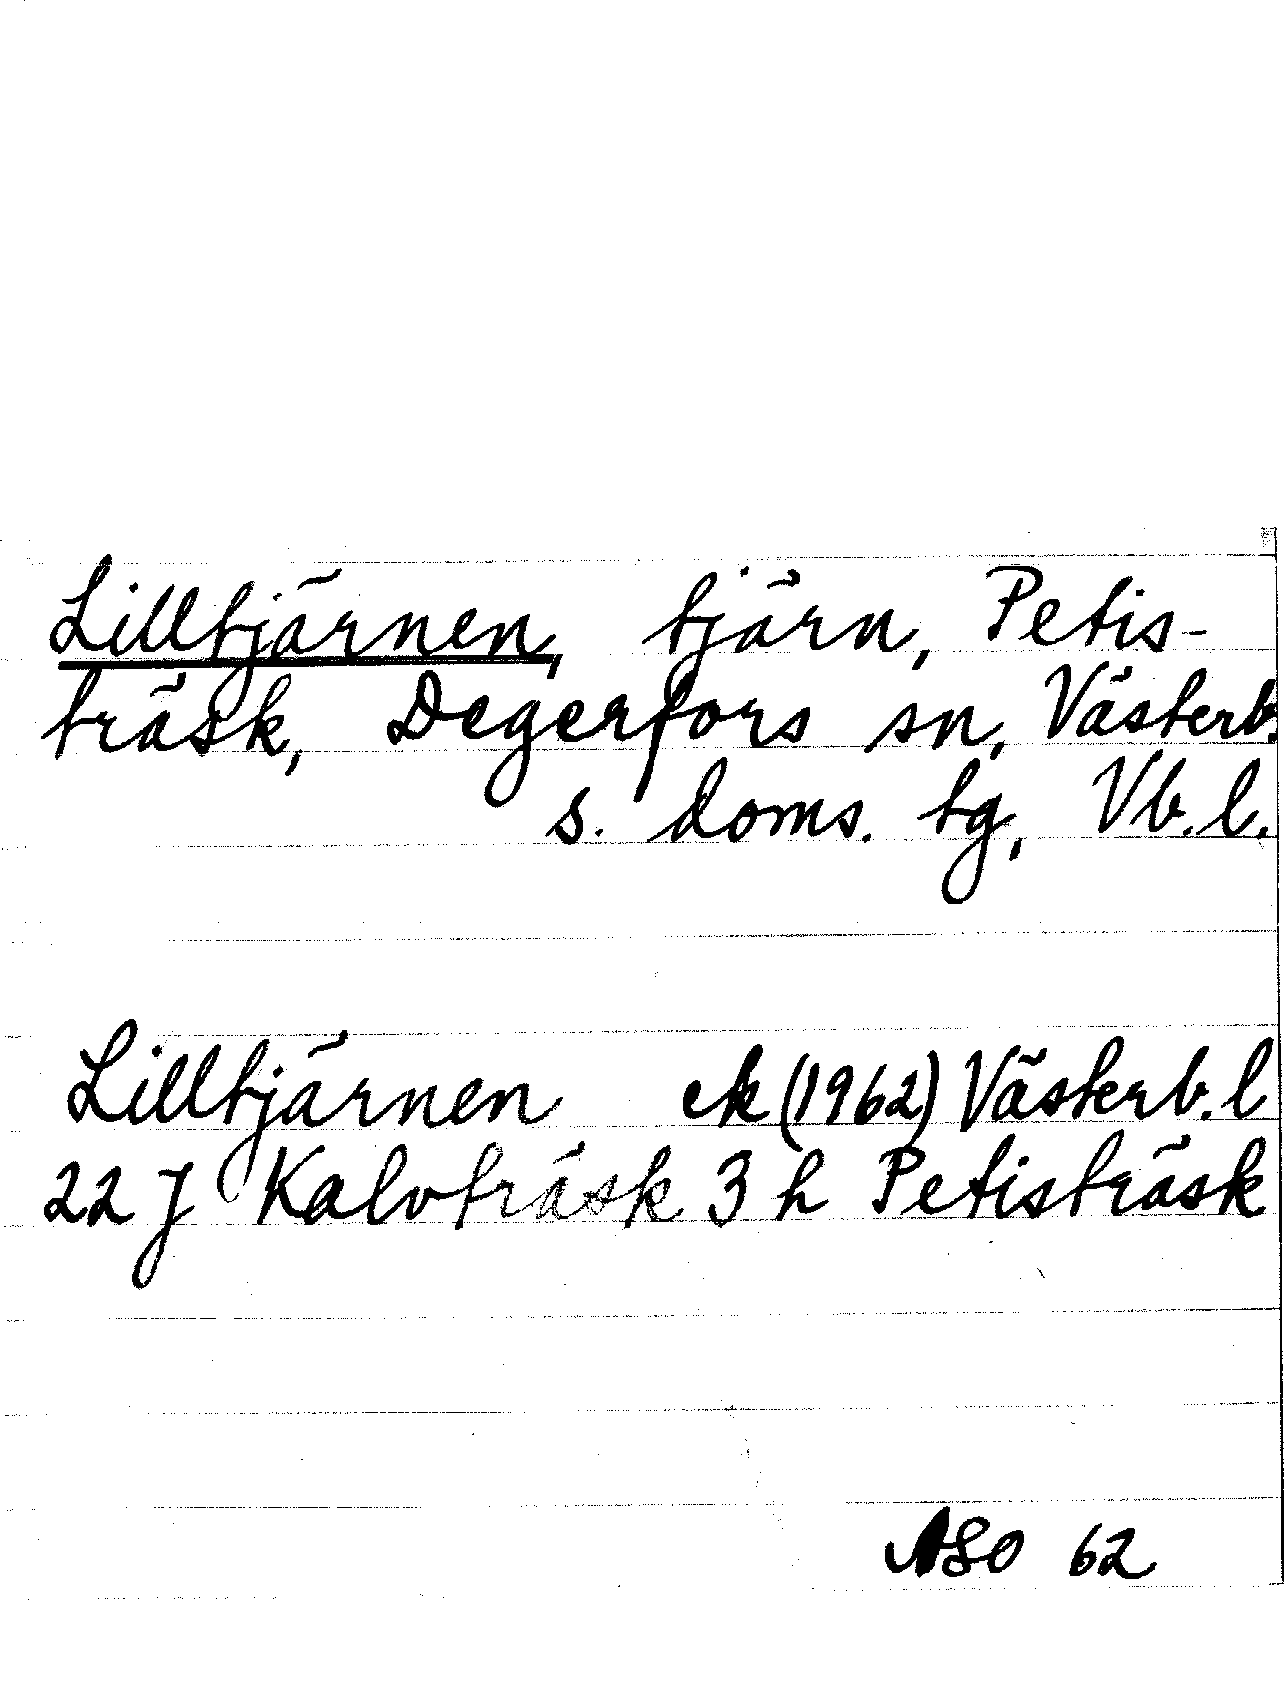 Lilltjärnen, tjärn, Petis-
träsk, Degerfors sn, Västerb.
s. doms. tg, Vb.l.
Lilltjärnen ek (1962) Västerb. l
22 J Kalvträsk 3 h Petisträsk
ASO 62